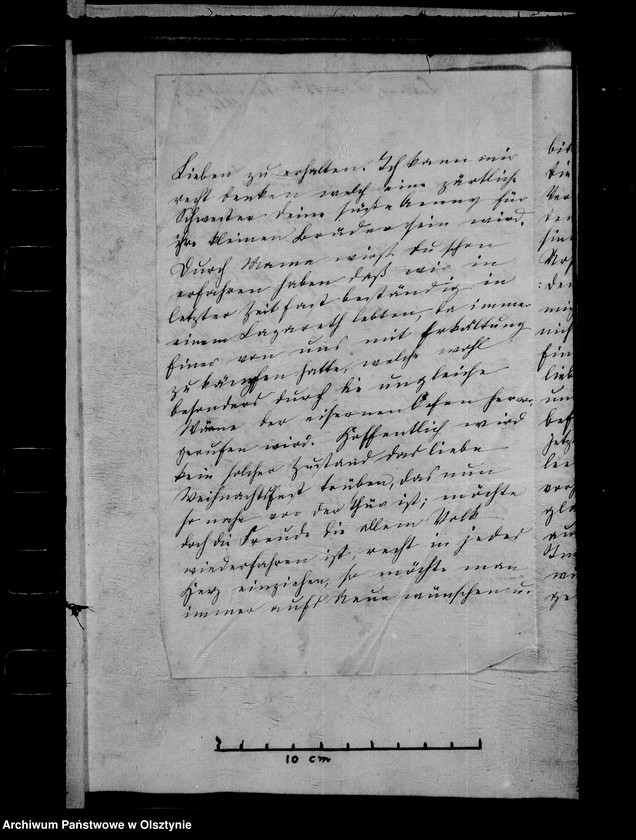 Lieben zu erhalten. Ich kann mir
recht denken welch eine zärtliche
Schwester deine süße Anny für
ihre kleinen Brüder sein wird.
Durch Mama wirst du schon
erfahren haben daß wir in
letzter Zeit fast beständig in
einem Lazareth lebten, da immer
Eines von uns mit Erkältung
zu kämpfen hatte, welche wohl
besonders durch die ungleiche
Wärme der eisernen Oefen hervor-
gerufen wird. Hoffentlich wird
kein solcher Zustand das liebe
Weihnachtsfest trüben, das nun
so nahe vor der Thür ist; möchte
doch die Freude die allem Volk
wiederfahren ist, recht in jedes
Herz einziehen, so möchte man
immer aufs Neue wünschen u.
10 cm
Archiwum Państwowe w Olsztynie